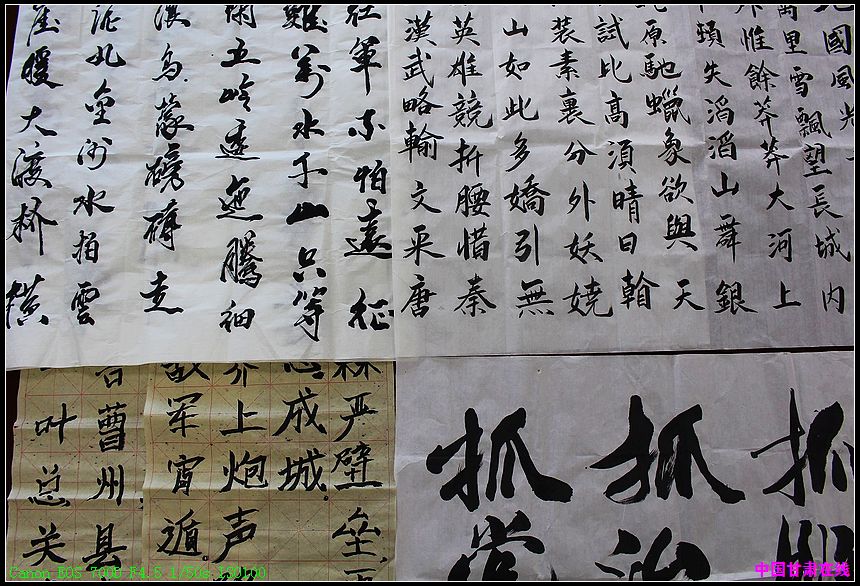 國風光
萬里雪飄望長城内
外惟餘莽莽大河上
頓失滔滔山舞銀
原馳蠟象欲與天
試比高須晴日看
裝素裹分外妖嬈
山如此多嬌引無
英雄競折腰惜秦
漢武略輸文采唐
紅軍不怕遠征
難萬水千山只等
五嶺逶迤騰細
浪烏蒙磅礴走
泥丸金沙水拍雲
崖暖大渡橋橫
森严壁垒
成城。
界上炮声
敌军宵遁。
曹州县
一叶总关
抓
抓治
抓党
Canon EOS 700D F4.5 1/50s ISO100
中国甘肃在线